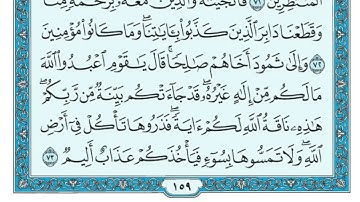 ٱلْمُنتَظِرِينَ ٧١ فَأَنجَيْنَٰهُ وَٱلَّذِينَ مَعَهُۥ بِرَحْمَةٍ مِّنَّا
وَقَطَعْنَا دَابِرَ ٱلَّذِينَ كَذَّبُوا۟ بِـَٔايَٰتِنَا ۖ وَمَا كَانُوا۟ مُؤْمِنِينَ
٧٢ وَإِلَىٰ ثَمُودَ أَخَاهُمْ صَٰلِحًا ۗ قَالَ يَٰقَوْمِ ٱعْبُدُوا۟ ٱللَّهَ
مَا لَكُم مِّنْ إِلَٰهٍ غَيْرُهُۥ ۖ قَدْ جَآءَتْكُم بَيِّنَةٌ مِّن رَّبِّكُمْ ۖ
هَٰذِهِۦ نَاقَةُ ٱللَّهِ لَكُمْ ءَايَةً ۖ فَذَرُوهَا تَأْكُلْ فِىٓ أَرْضِ
ٱللَّهِ ۖ وَلَا تَمَسُّوهَا بِسُوٓءٍ فَيَأْخُذَكُمْ عَذَابٌ أَلِيمٌ ٧٣
١٥٩